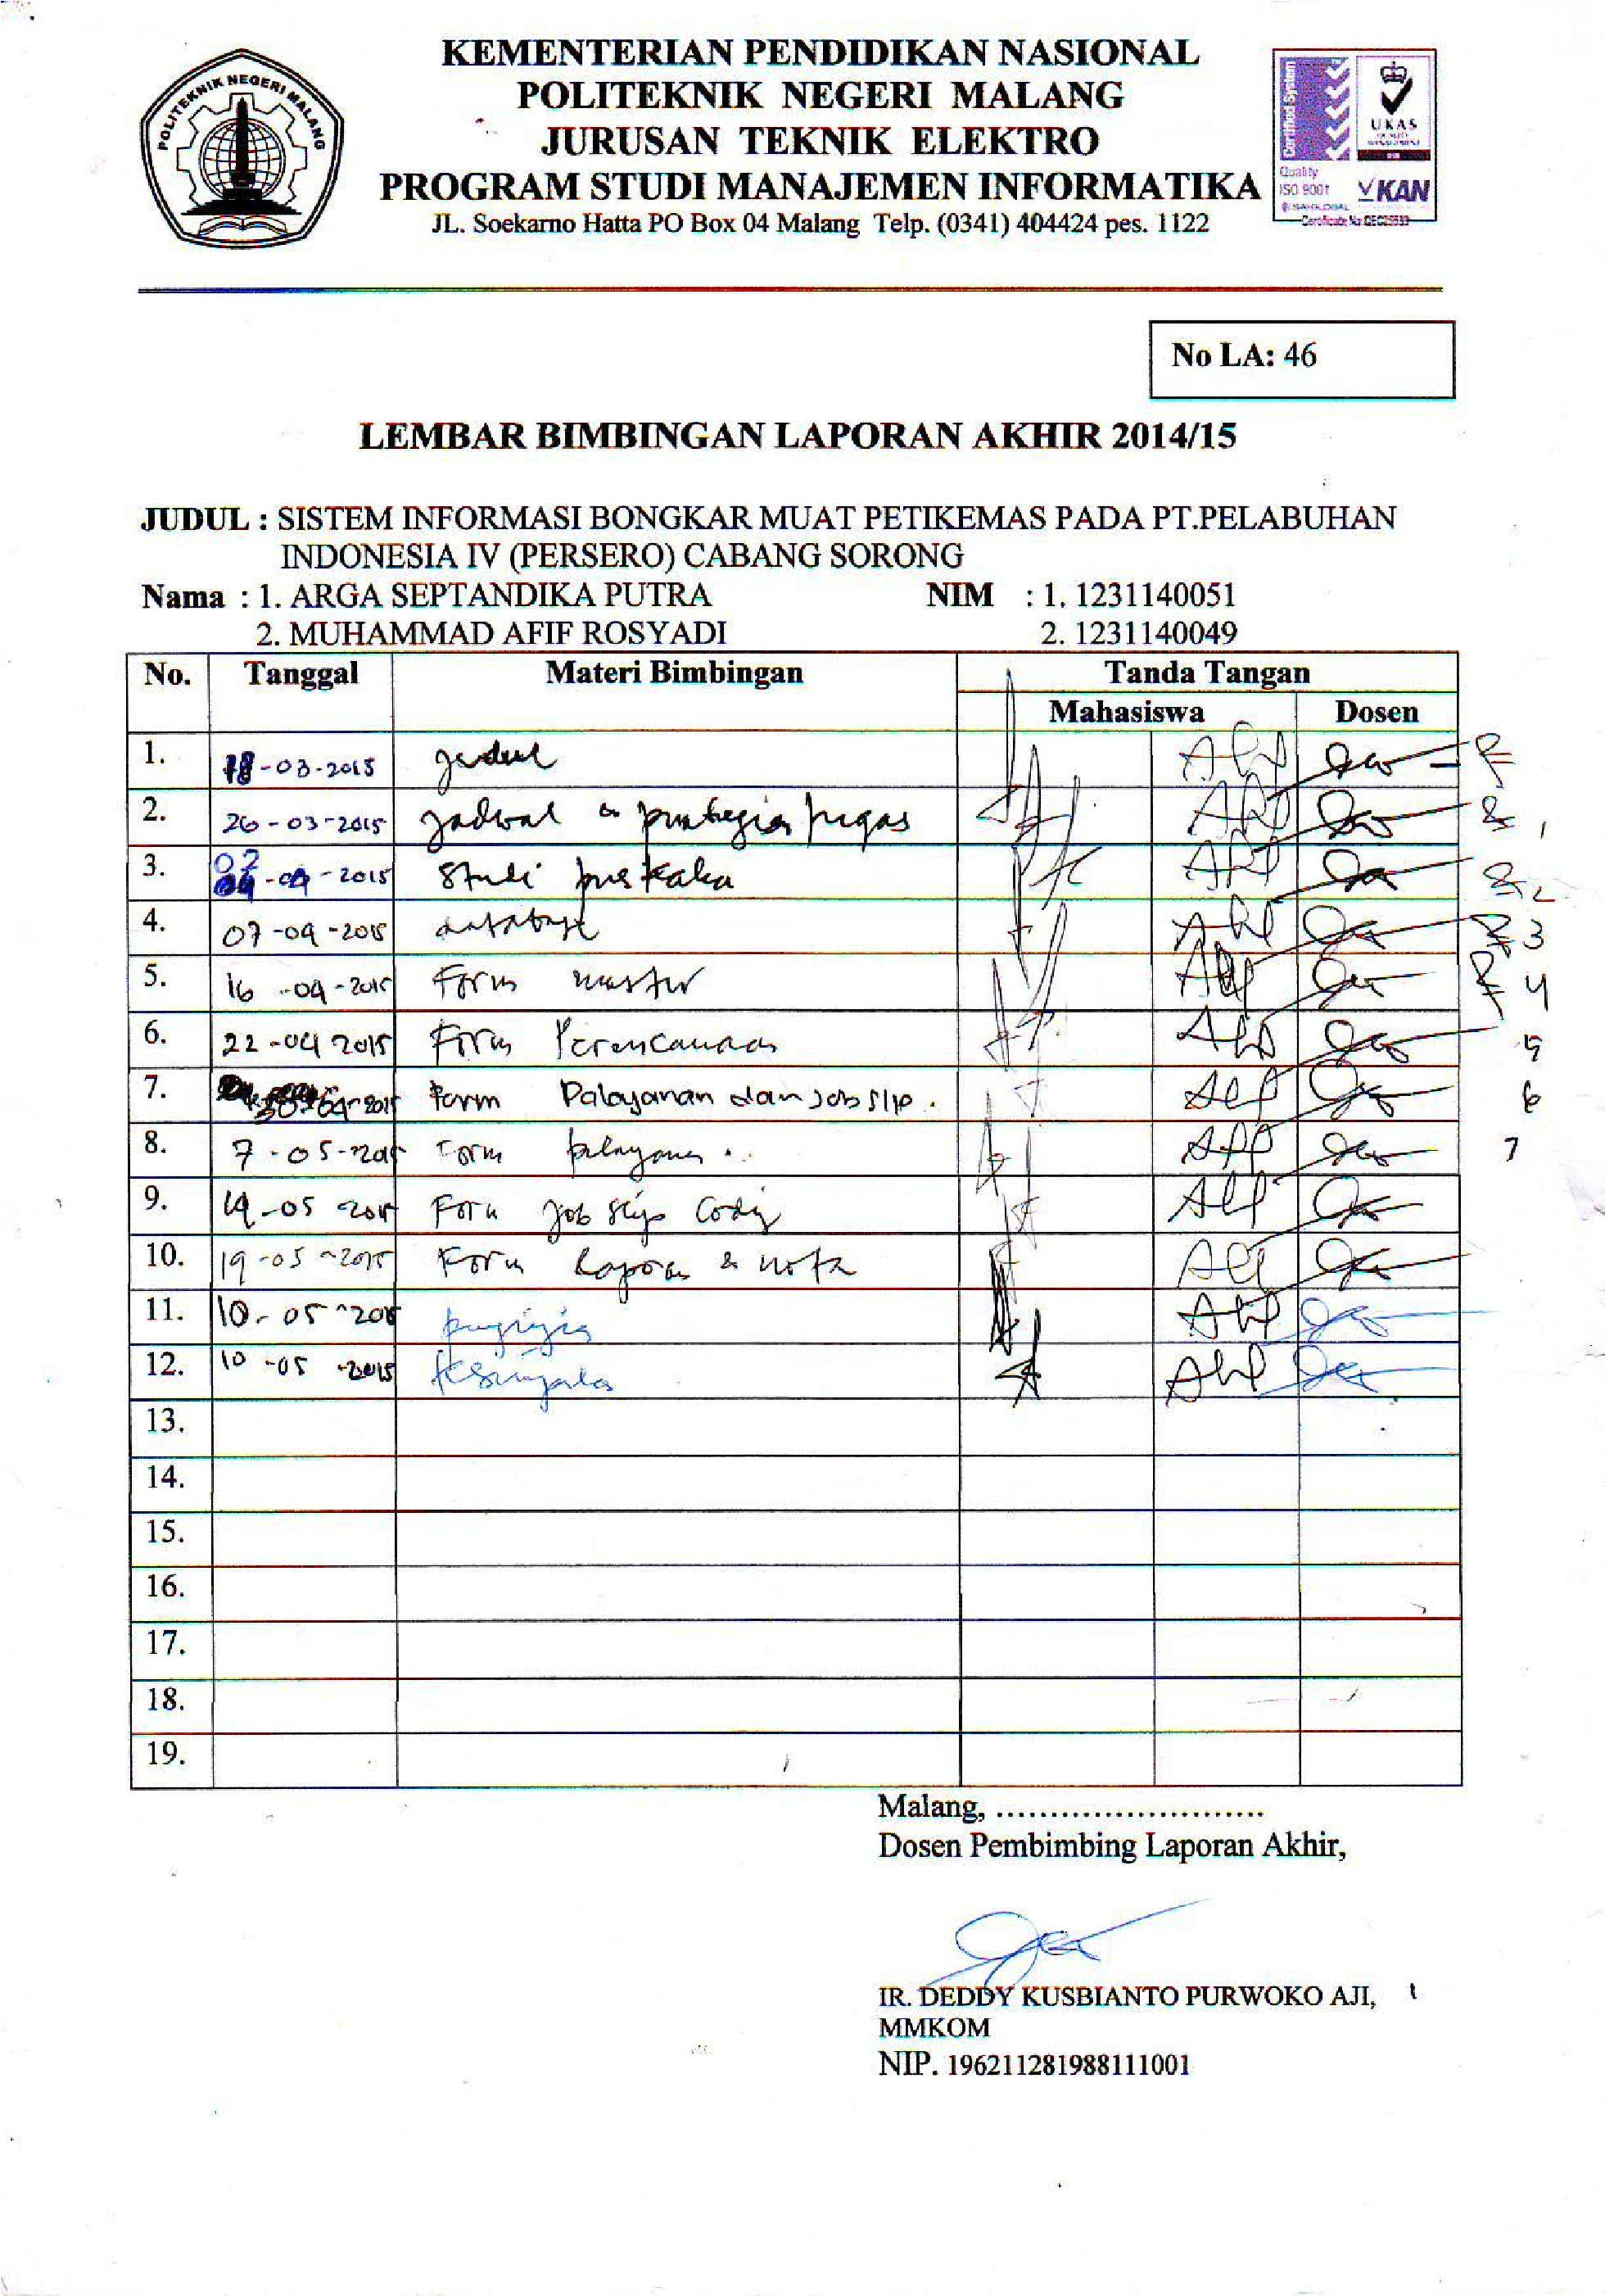 KEMENTERIAN PENDIDIKAN NASIONAL
POLITEKNIK NEGERI MALANG
JURUSAN TEKNIK ELEKTRO
PROGRAM STUDI MANAJEMEN INFORMATIKA
JL. Soekarno Hatta PO Box 04 Malang Telp. (0341) 404424 pes. 1122
POLITEKNIK NEGERI MALANG
UKAS
Quality
ISO 9001
KAN
No LA: 46
LEMBAR BIMBINGAN LAPORAN AKHIR 2014/15
JUDUL : SISTEM INFORMASI BONGKAR MUAT PETIKEMAS PADA PT.PELABUHAN
INDONESIA IV (PERSERO) CABANG SORONG
Nama : 1. ARGA SEPTANDIKA PUTRA NIM : 1. 1231140051
2. MUHAMMAD AFIF ROSYADI 2. 1231140049
No. Tanggal Materi Bimbingan Tanda Tangan
Mahasiswa Dosen
1. 18-03-2015 judul
2. 26-03-2015 jadwal
3. 02-04-2015 Studi pustaka
4. 07-04-2015 database
5. 16-04-2015 Form master
6. 22-04 2015 Form Perencanaan
7. 30-04-2015 Form Palayanan dan Job slip.
8. 7-05-2015 Form pelayanan
9. 14-05 2015 Form Job Slip Coding
10. 19-05-2015 Form Laporan & nota
11. 10-05-2015 pengujian
12. 10-05-2015 kesimpulan
13.
14.
15.
16.
17.
18.
19.
Malang, .........................
Dosen Pembimbing Laporan Akhir,
IR. DEDDY KUSBIANTO PURWOKO AJI,
MMKOM
NIP. 196211281988111001